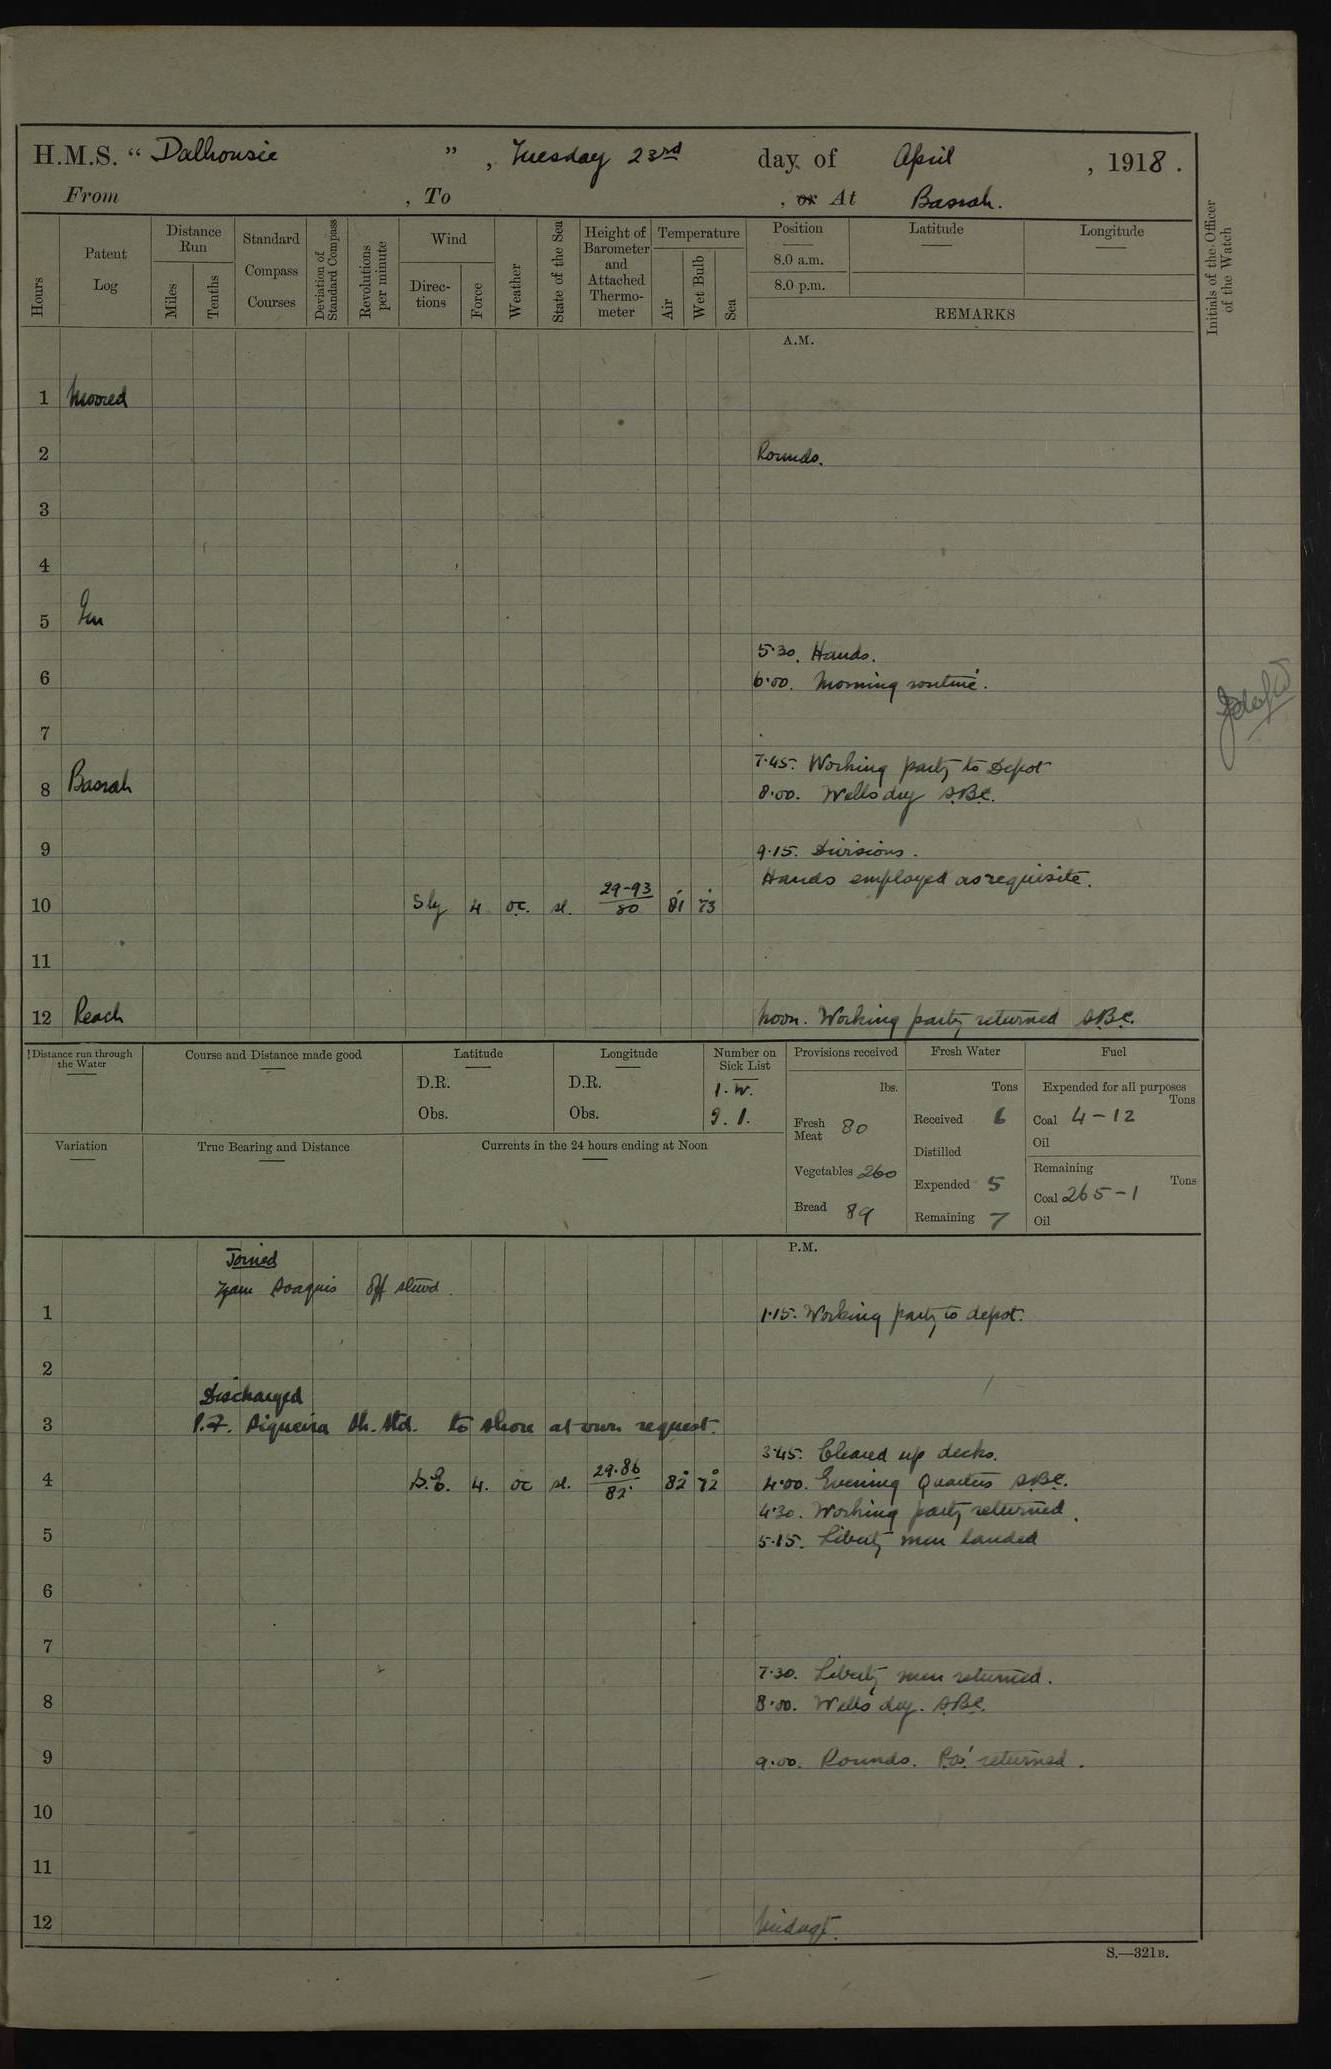 H.M.S. “ Dalhousie ” , Tuesday 23rd day of April , 1918 .
From , To , or At Basrah.
Hours
Patent Log
Distance Run
Miles
Tenths
Standard Compass Courses
Deviation of Standard Compass
Revolutions per minute
Wind
Direc-tions
Force
Weather
State of the Sea
Height of Barometer and Attached Thermo-meter
Temperature
Air
Wet Bulb
Sea
Position
8.0 a.m.
8.0 p.m.
Latitude
Longitude
REMARKS
Initials of the Officer of the Watch
A.M.
1 Moored
2 Rounds.
3
4
5 In
5.30. Hands.
6 6.00. Morning routine.
7
7.45. Working party to Depot
8 Basrah 8.00. Wells dry S.B.C.
9 9.15. Divisions.
Hands employed as requisite.
10 Sly 4 oc. sl. 29-93 / 80 81 73
11
12 Reach Noon. Working party returned S.B.C.
Distance run through the Water
Course and Distance made good
Latitude
D.R.
Obs.
Longitude
D.R.
Obs.
Number on Sick List
1. W.
9. I.
Provisions received
lbs.
Fresh Meat 80
Vegetables 260
Bread 89
Fresh Water
Tons
Received 6
Distilled
Expended 5
Remaining 7
Fuel
Expended for all purposes
Tons
Coal 4-12
Oil
Remaining
Tons
Coal 265-1
Oil
Variation
True Bearing and Distance
Currents in the 24 hours ending at Noon
P.M.
Joined
Off stewd.
1 1.15. Working party to depot.
2
Discharged
3 P.F. Siqueira Sh. Std. to shore at own request.
3.45. Cleared up decks.
4 S.E. 4. oc sl. 29.86 / 82° 82° 72° 4.00. Evening Quarters S.B.C.
4.30. Working party returned.
5 5.15. Liberty men landed
6
7
7.30. Liberty men returned.
8 8.00. Wells dry. S.B.C.
9 9.00. Rounds. P.Os' returned.
10
11
12 Midngt.
S.—321B.